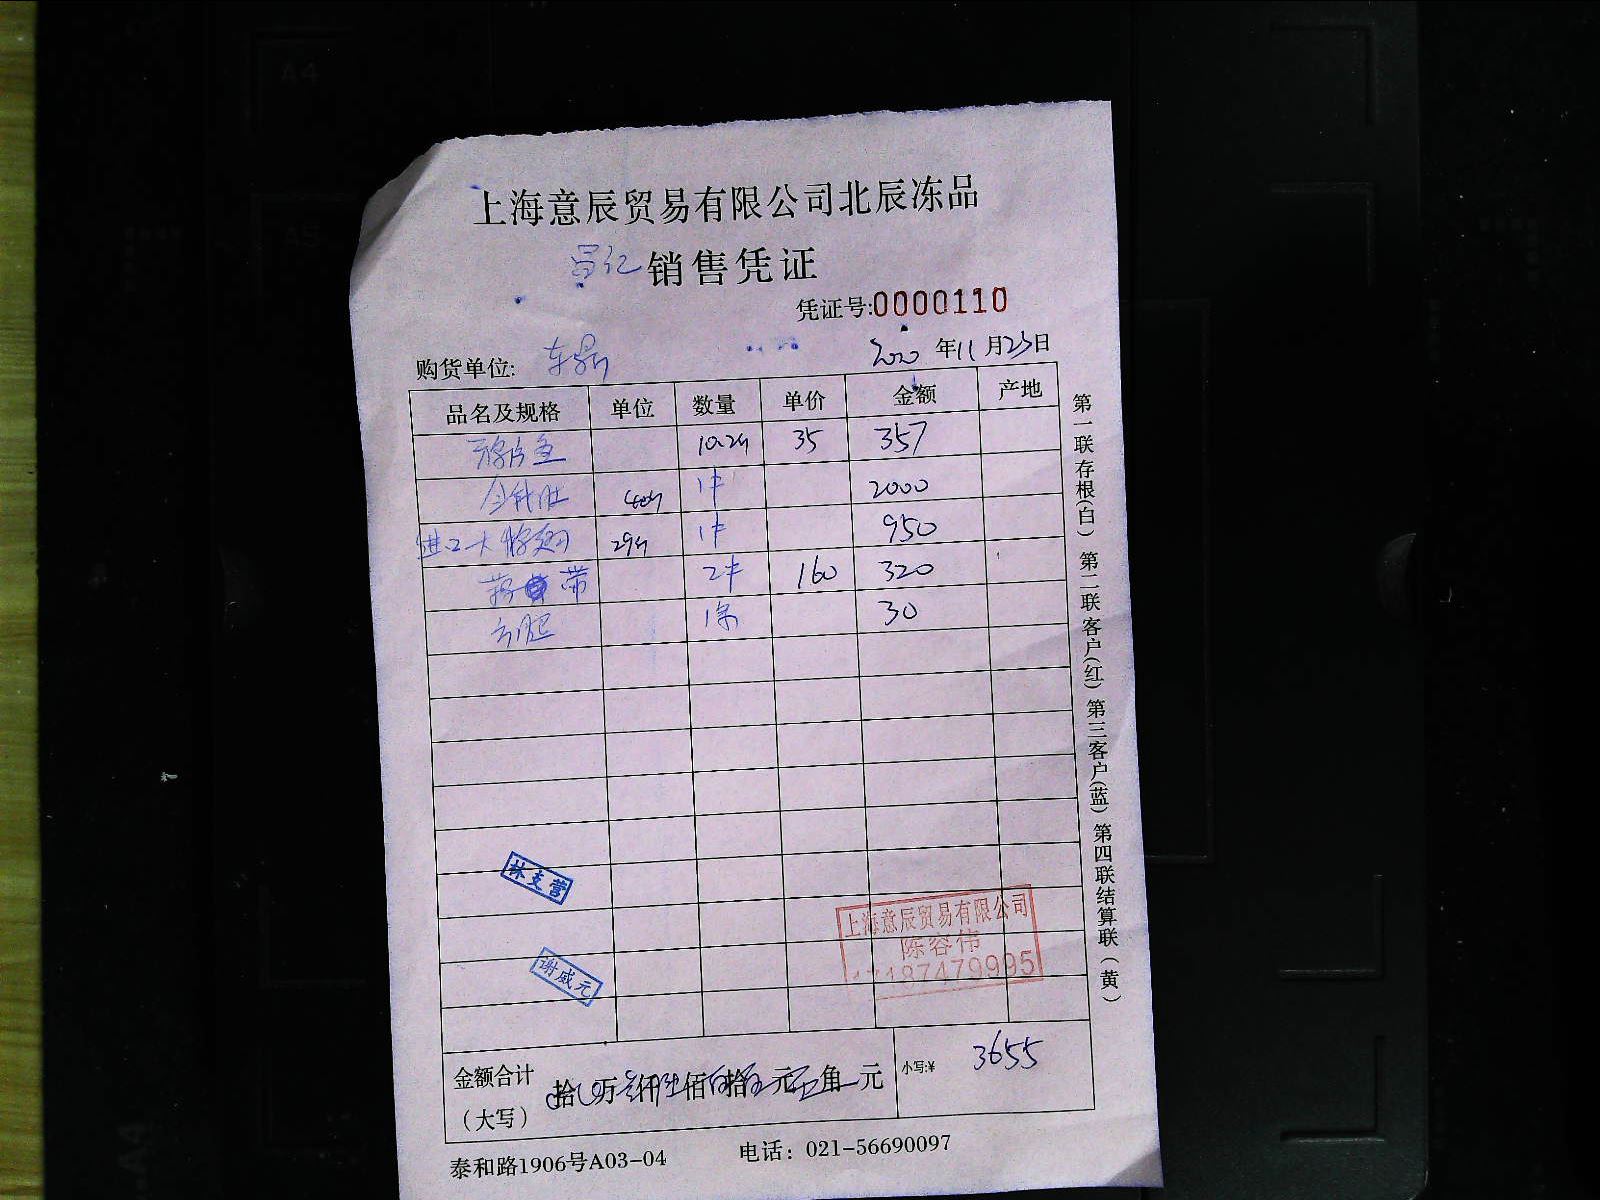 上海意辰贸易有限公司北辰冻品
销售凭证
凭证号:0000110
购货单位: 2020年11月23日
品名及规格 单位 数量 单价 金额 产地
10.2斤 35 357
1件 2000
进口大 29斤 1件 950
带 2件 160 320
1条 30
林支营
谢威元
上海意辰贸易有限公司
陈容伟
17187479995
金额合计 拾 万 仟 佰 拾 元 角 元 小写:¥ 3655
（大写）
泰和路1906号A03-04 电话：021-56690097
第一联存根(白) 第二联客户(红) 第三客户(蓝) 第四联结算联(黄)